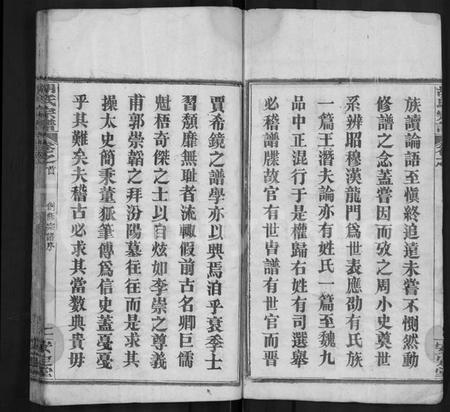 族讀論語至愼終追遠未嘗不惻然動
修譜之念蓋嘗因而攷之周小史奠世
系辨昭穆漢龍門爲世表應劭有氏族
一篇王潛夫論亦有姓氏一篇至魏九
品中正混行于是權歸右姓有司選舉
必稽譜牒故官有世譜有世官而晋
賈希鏡之譜學亦以興焉洎乎衰季士
習頹靡無耻者流輙假前古名卿巨儒
魁梧奇傑之士以自炫如李崇之尊義
甫郭崇韜之拜汾陽墓往往而是求其
操太史簡秉董狐筆傳爲信史蓋戞戞
乎其難矣夫稽古必求其當數典貴毋
胡氏宗譜 卷之首